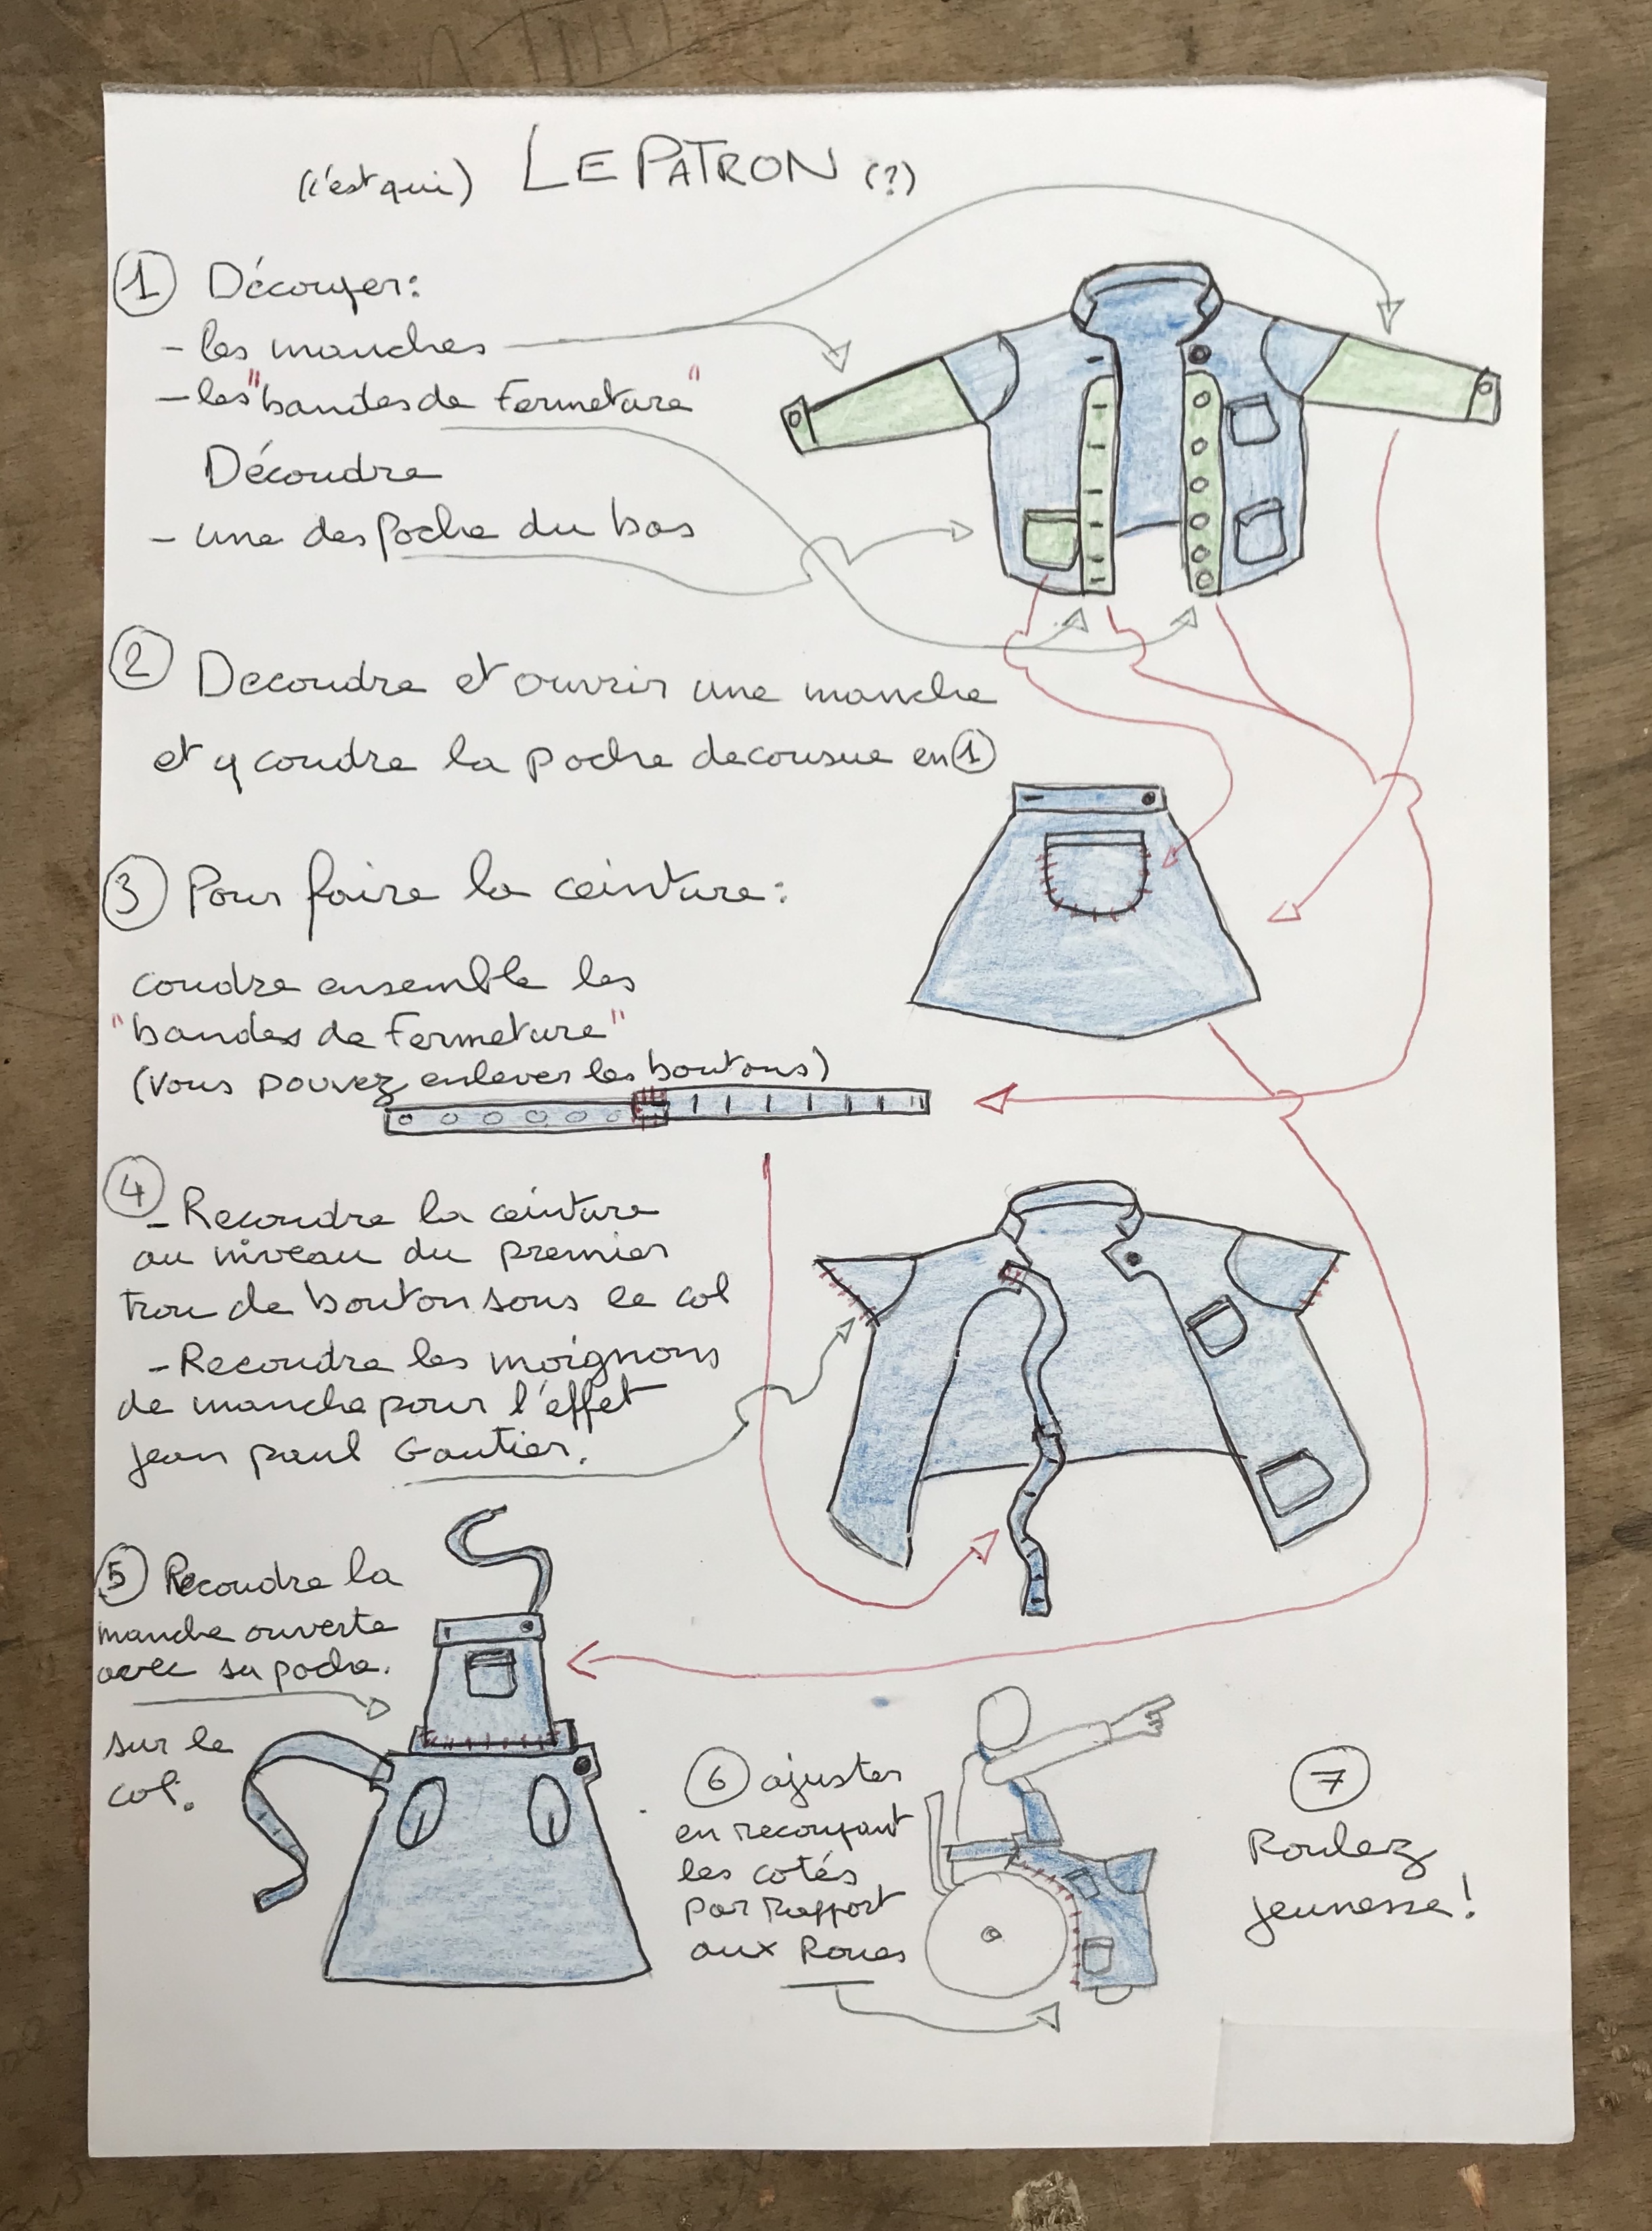 (c'est qui) LE PATRON (?)
① Découper:
- les manches
- les "bandes de Fermeture"
Découdre
- une des poche du bas
② Decoudre et ouvrir une manche
et y coudre la poche decousue en ①
③ Pour faire la ceinture:
coudre ensemble les
"bandes de Fermeture"
(vous pouvez enlever les boutons)
④ - Recoudre la ceinture
au niveau du premier
trou de bouton sous le col
- Recoudre les moignons
de manche pour l'effet
jean paul Gautier.
⑤ Recoudre la
manche ouverte
avec sa poche.
sur le
col.
⑥ ajuster
en recoupant
les cotés
par rapport
aux Roues
⑦
Roulez
jeunesse!